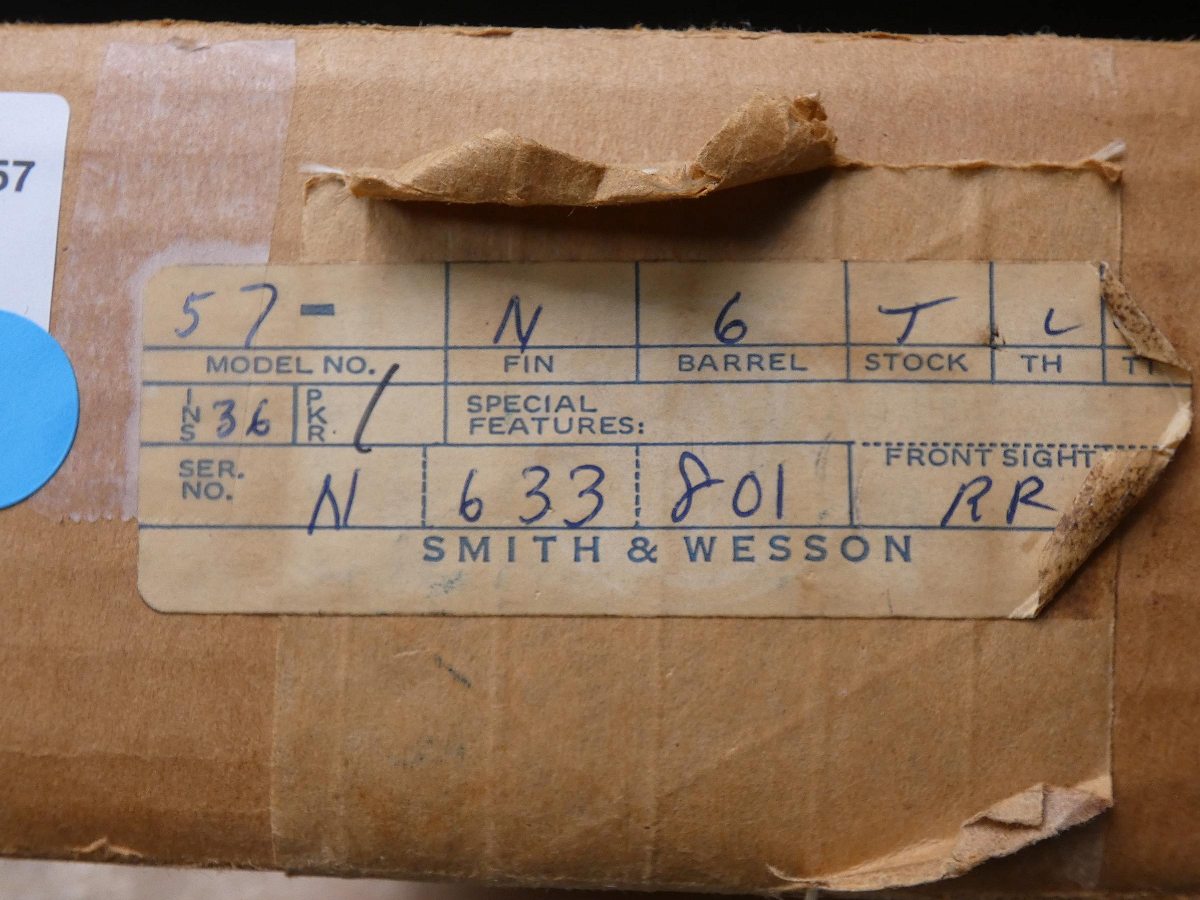 57
57- N 6 T L
MODEL NO. FIN BARREL STOCK TH TT
INS 36 PKR. SPECIAL FEATURES:
SER. NO. N 633 801 FRONT SIGHT RR
SMITH & WESSON